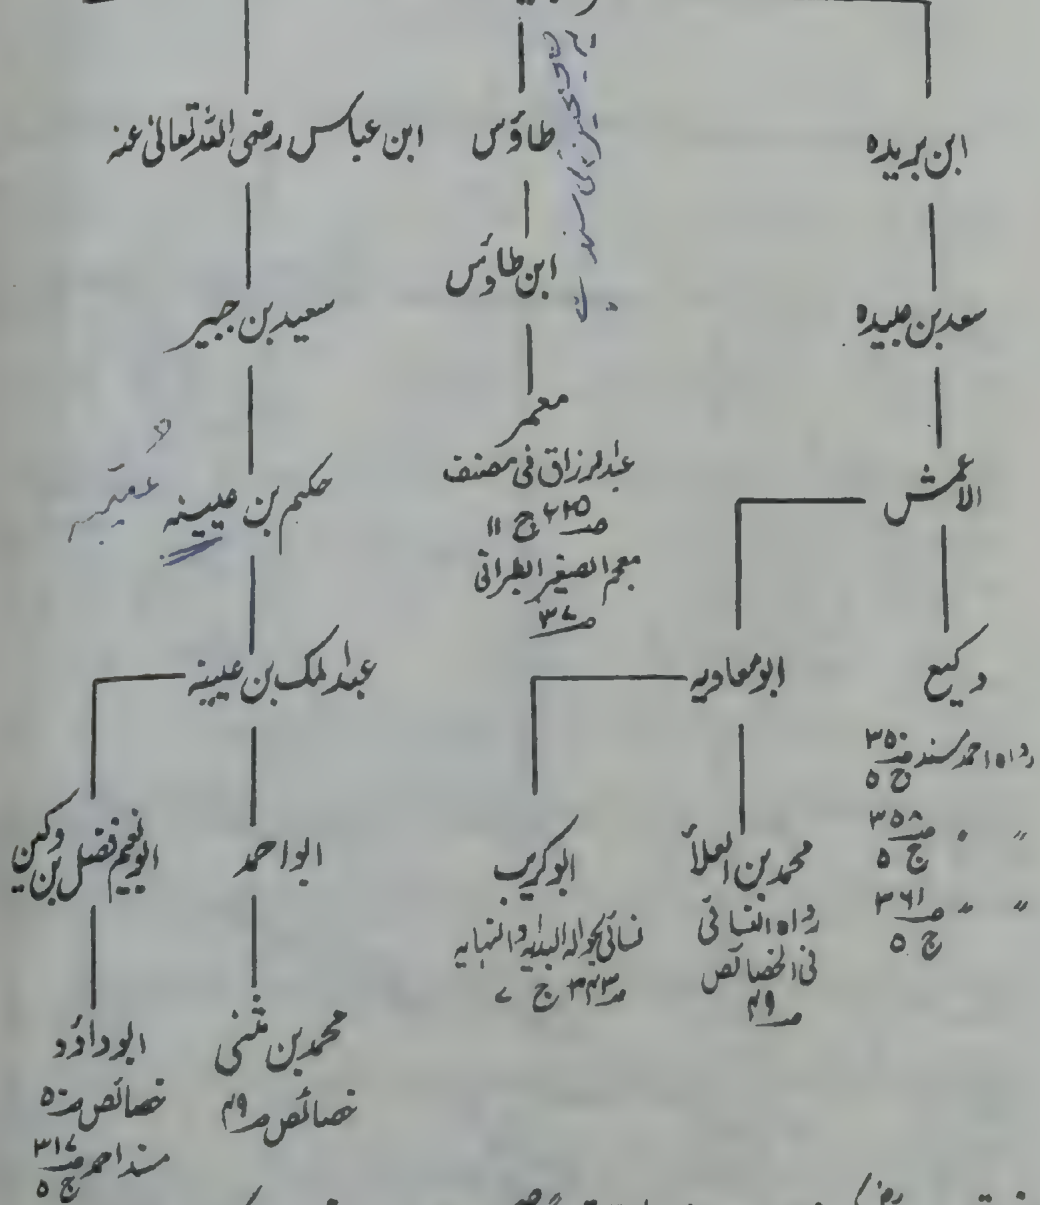 ابن بریدہ
سعد بن عبیدہ
الاعمش
وکیع
رواہ احمد مسند صـ۳۵۰
ج ۵
〃 〃 صـ۳۵۸
ج ۵
〃 〃 صـ۳۶۱
ج ۵
ابو معاویہ
محمد بن العلاء
رواہ النسائی
فی الخصائص
صـ۴۹
ابو کریب
نسائی بحوالہ البدایہ والنہایہ
صـ۳۴۳ ج ۷
طاؤس
ابن طاؤس
معمر
عبدالرزاق فی مصنف
صـ۲۲۵ ج ۱۱
معجم الصغیر الطبرانی
صـ۳۷
ابن عباس رضی اللہ تعالیٰ عنہ
سعید بن جبیر
حکیم بن عیینہ
عبدالملک بن عیینہ
ابو احمد
محمد بن مثنی
خصائص صـ۴۹
ابو نعیم فضل بن وکین
ابو داؤد
خصائص صـ۵۰
مسند احمد صـ۳۱۷
ج ۵